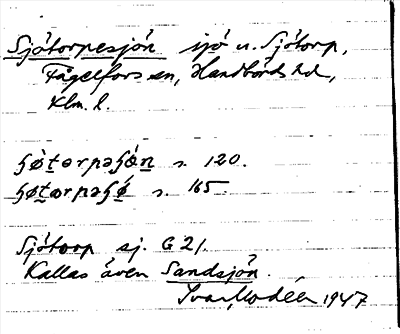 Sjötorpesjön sjö v. Sjötorp,
Fågelfors sn, Handbörds hd,
Klm. l.
ʃö̀tɔrpəʃö́n s. 120.
ʃö̀tɔrpəʃö́ s. 165.
Sjötorp sj. G 21.
Kallas även Sandsjön.
Ivar Modéer 1947